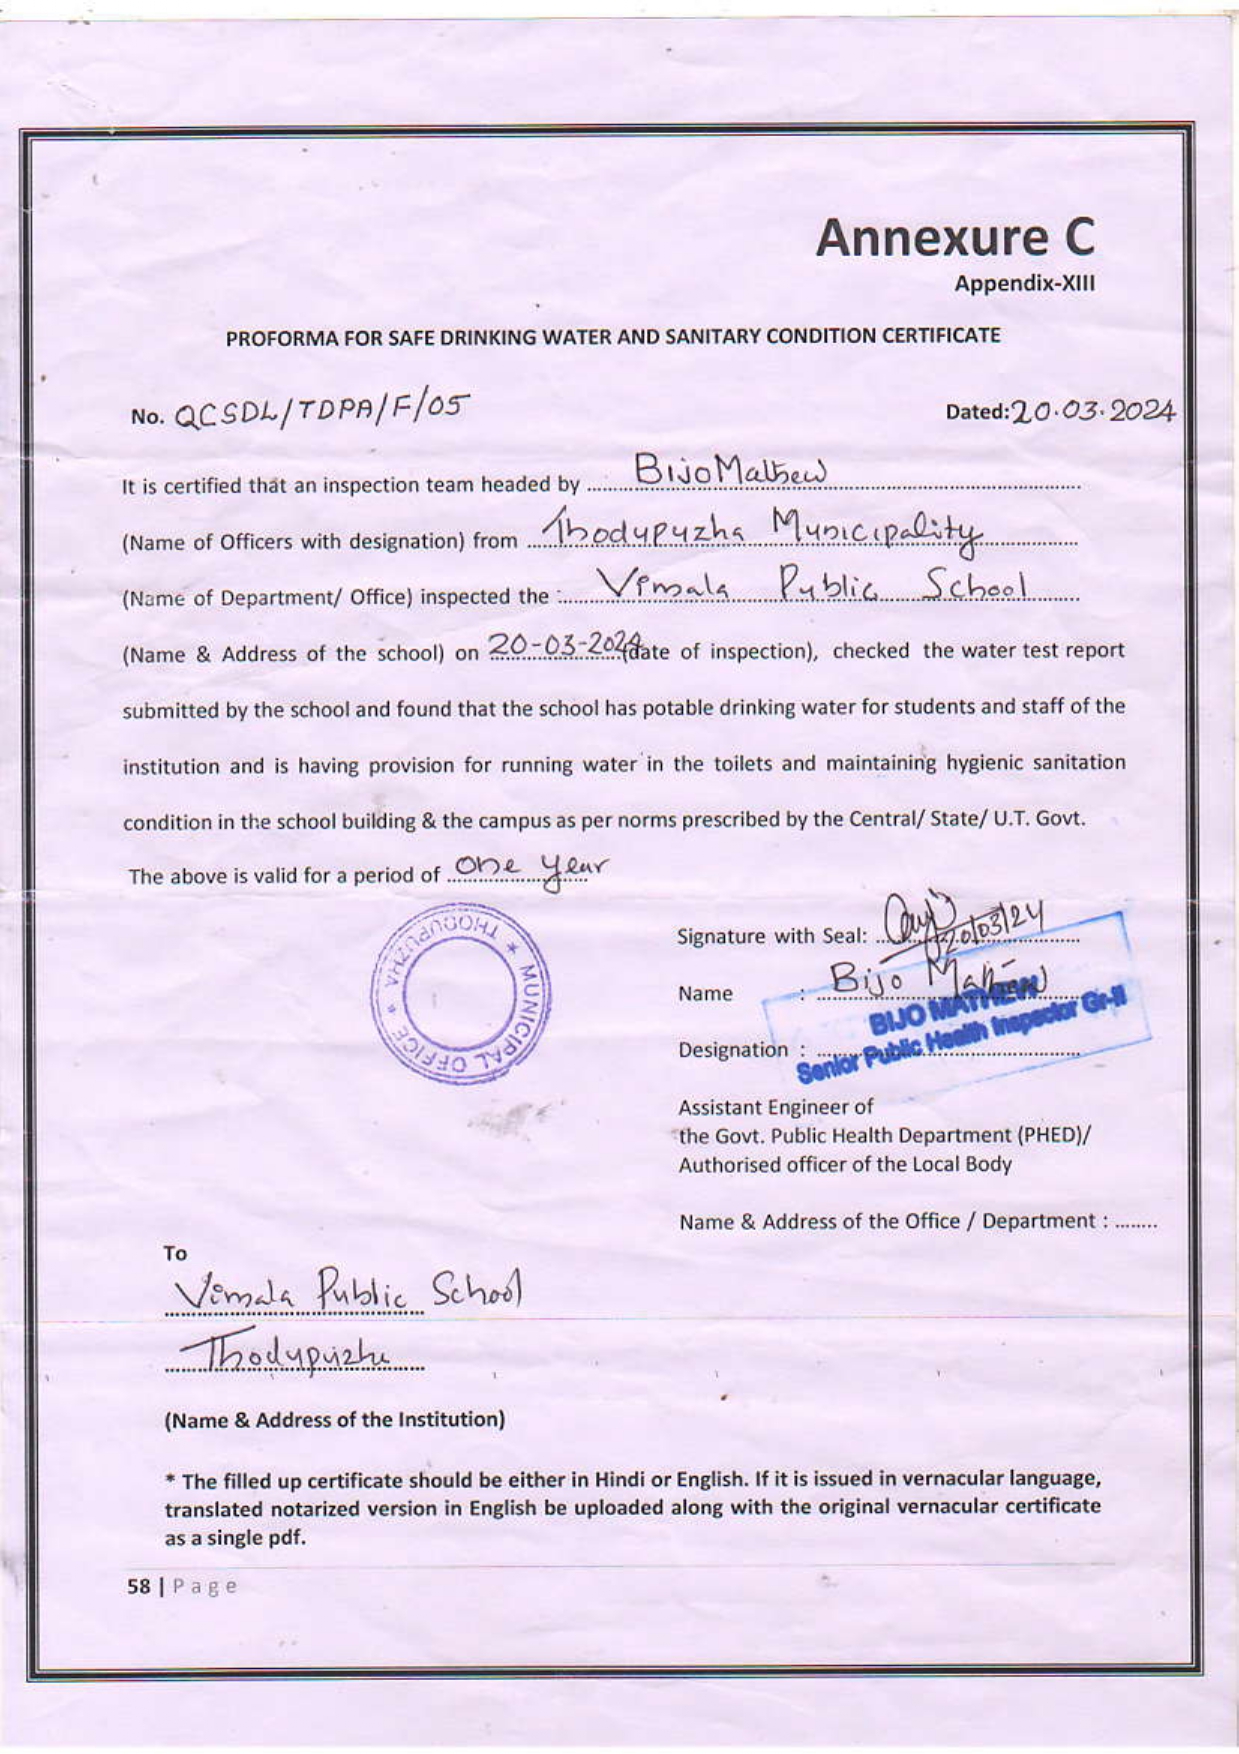 Annexure C
Appendix-XIII
PROFORMA FOR SAFE DRINKING WATER AND SANITARY CONDITION CERTIFICATE
No. QCSDL/TDPA/F/05 Dated:20.03.2024
It is certified that an inspection team headed by ..... Bijo Mathew .....
(Name of Officers with designation) from ..... Thodupuzha Municipality .....
(Name of Department/ Office) inspected the : ..... Vimala Public School .....
(Name & Address of the school) on 20-03-2024 (date of inspection), checked the water test report
submitted by the school and found that the school has potable drinking water for students and staff of the
institution and is having provision for running water in the toilets and maintaining hygienic sanitation
condition in the school building & the campus as per norms prescribed by the Central/ State/ U.T. Govt.
The above is valid for a period of one year
THODUPUZHA * MUNICIPAL OFFICE *
Signature with Seal: ..... 20/03/24
Name : Bijo Mathew
BIJO MATHEW
Designation : Senior Public Health Inspector Gr-II
Assistant Engineer of
the Govt. Public Health Department (PHED)/
Authorised officer of the Local Body
Name & Address of the Office / Department : ........
To
Vimala Public School
Thodupuzha
(Name & Address of the Institution)
* The filled up certificate should be either in Hindi or English. If it is issued in vernacular language,
translated notarized version in English be uploaded along with the original vernacular certificate
as a single pdf.
58 | Page